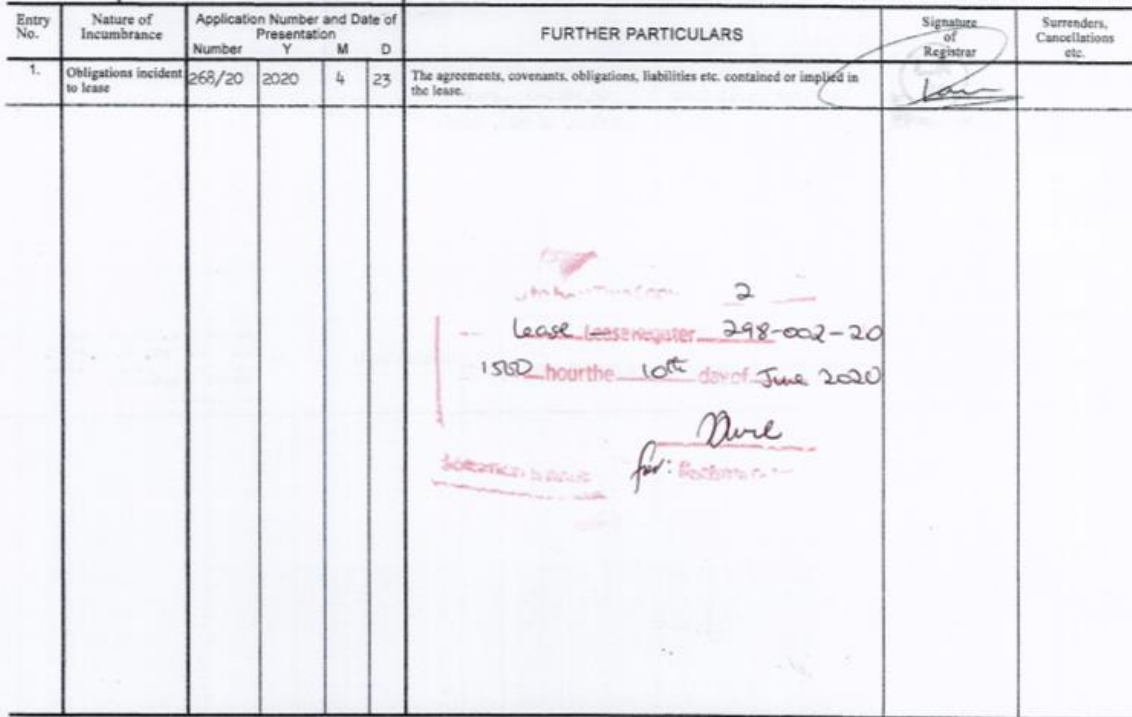 Entry No.
Nature of Incumbrance
Application Number and Date of Presentation
Number Y M D
FURTHER PARTICULARS
Signature of Registrar
Surrenders, Cancellations etc.
1.
Obligations incident to lease
268/20
2020
4
23
The agreements, covenants, obligations, liabilities etc. contained or implied in
the lease.
2
Lease Lease register 298-002-20
hour the 10th day of June 2020
for: